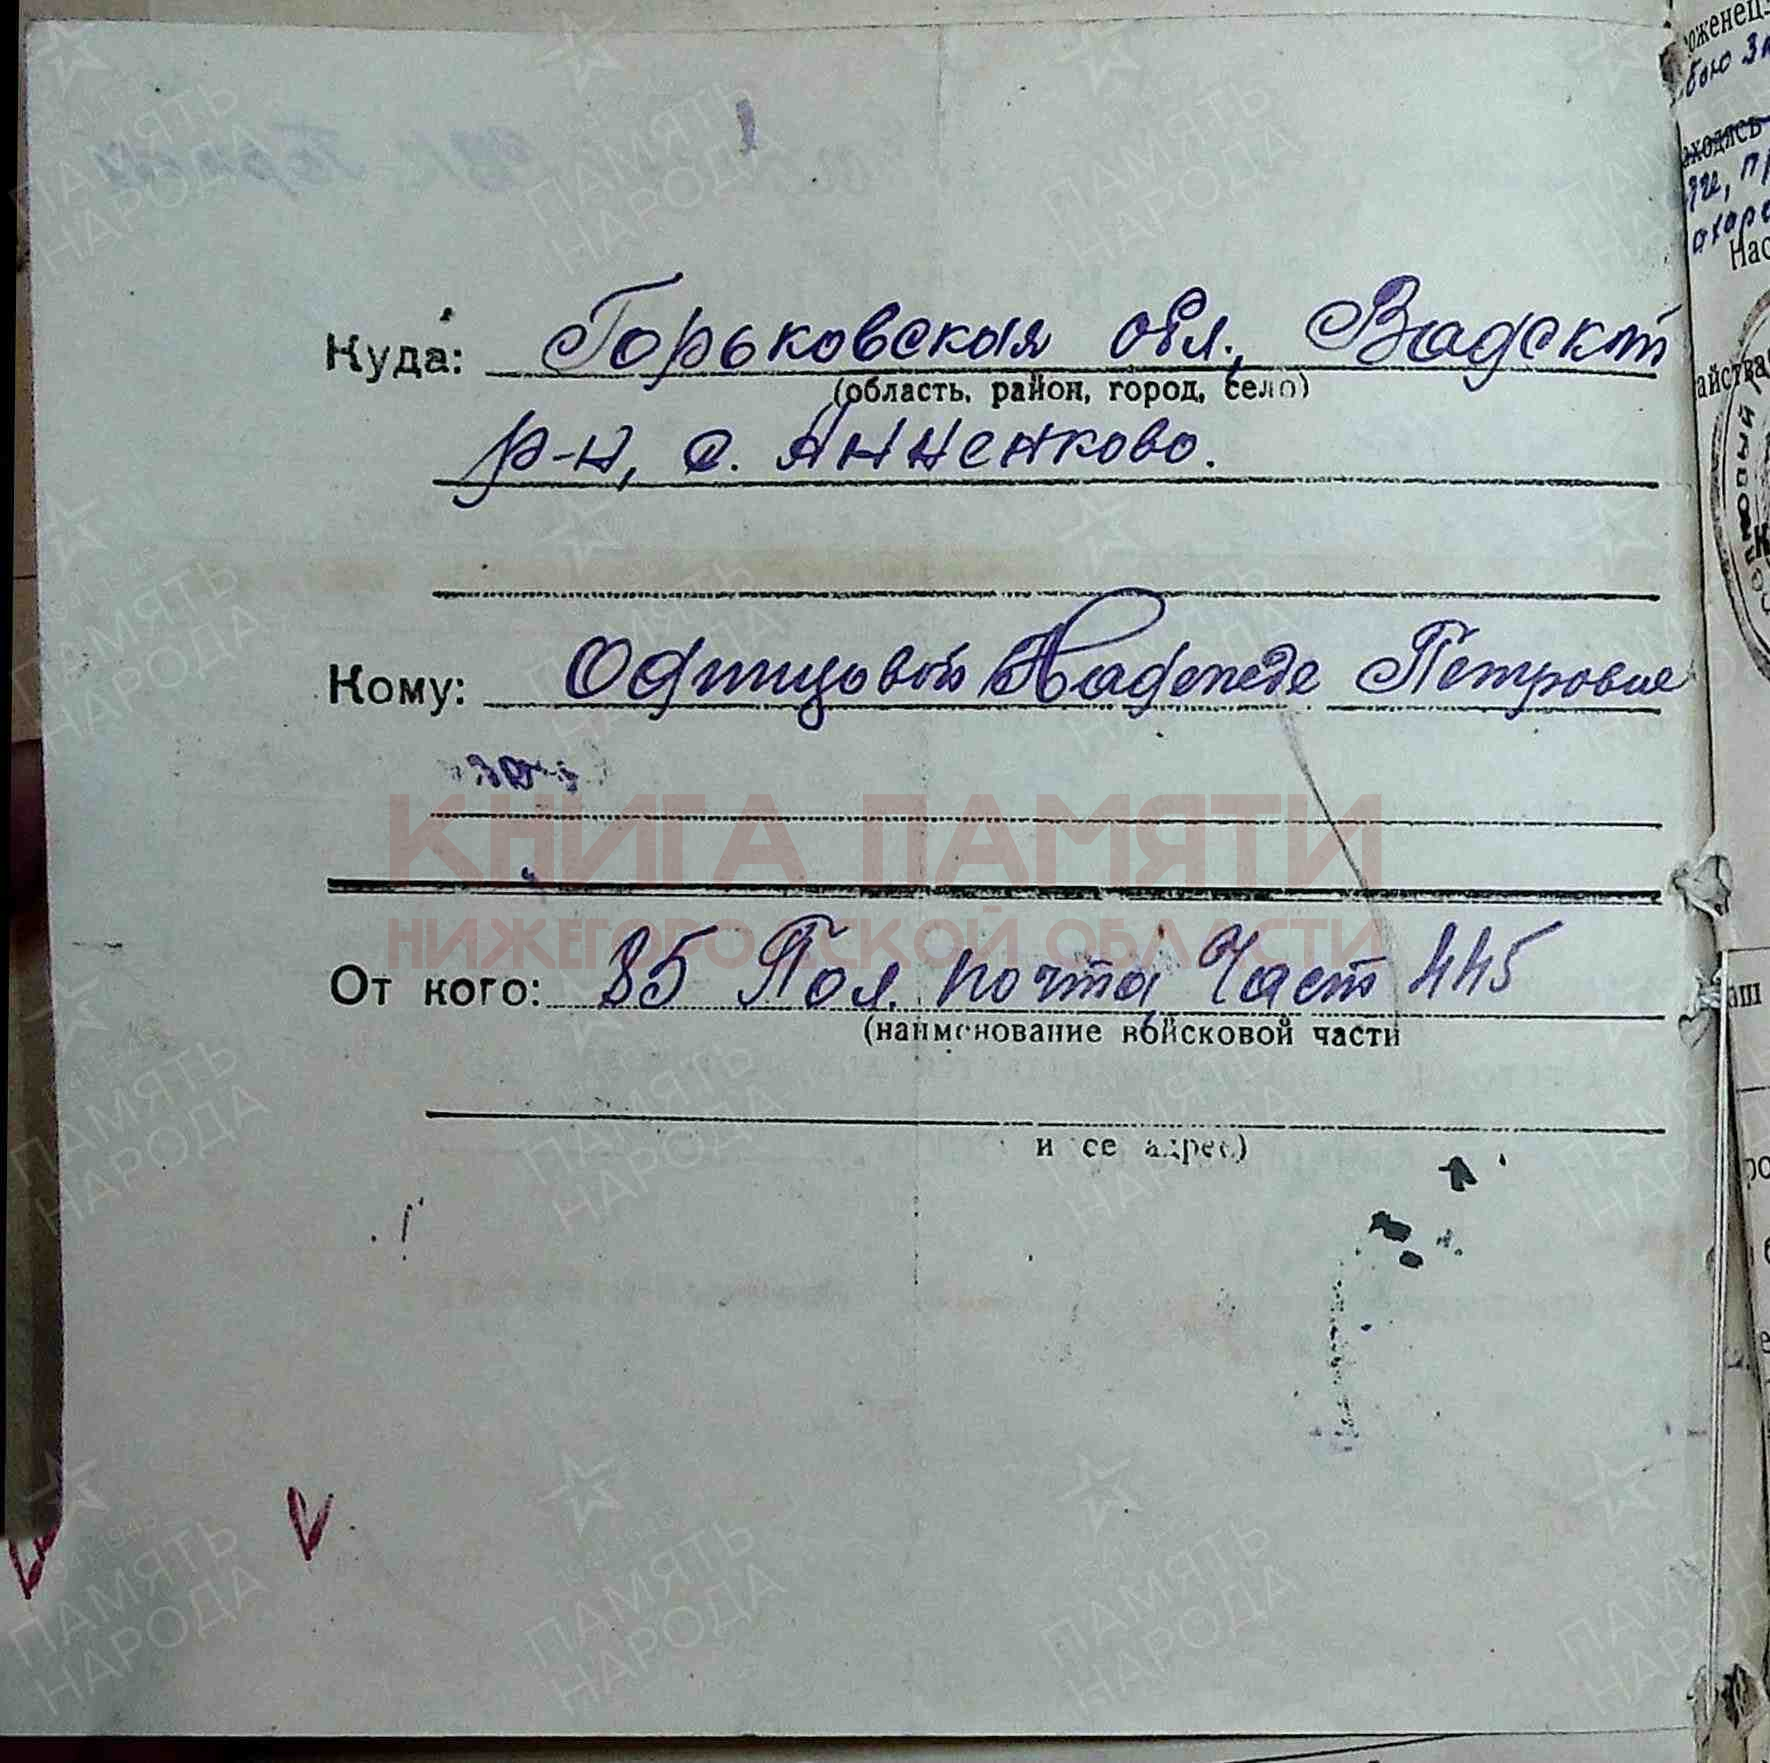 Куда: Горьковская обл., Вадский
(область, район, город, село)
р-н, с. Анненково.
Кому: Офицовой Надежде Петровне
КНИГА ПАМЯТИ
НИЖЕГОРОДСКОЙ ОБЛАСТИ
От кого: 35 Пол. почта, Част 445
(наименование войсковой части
и ее адрес)
ПАМЯТЬ
НАРОДА